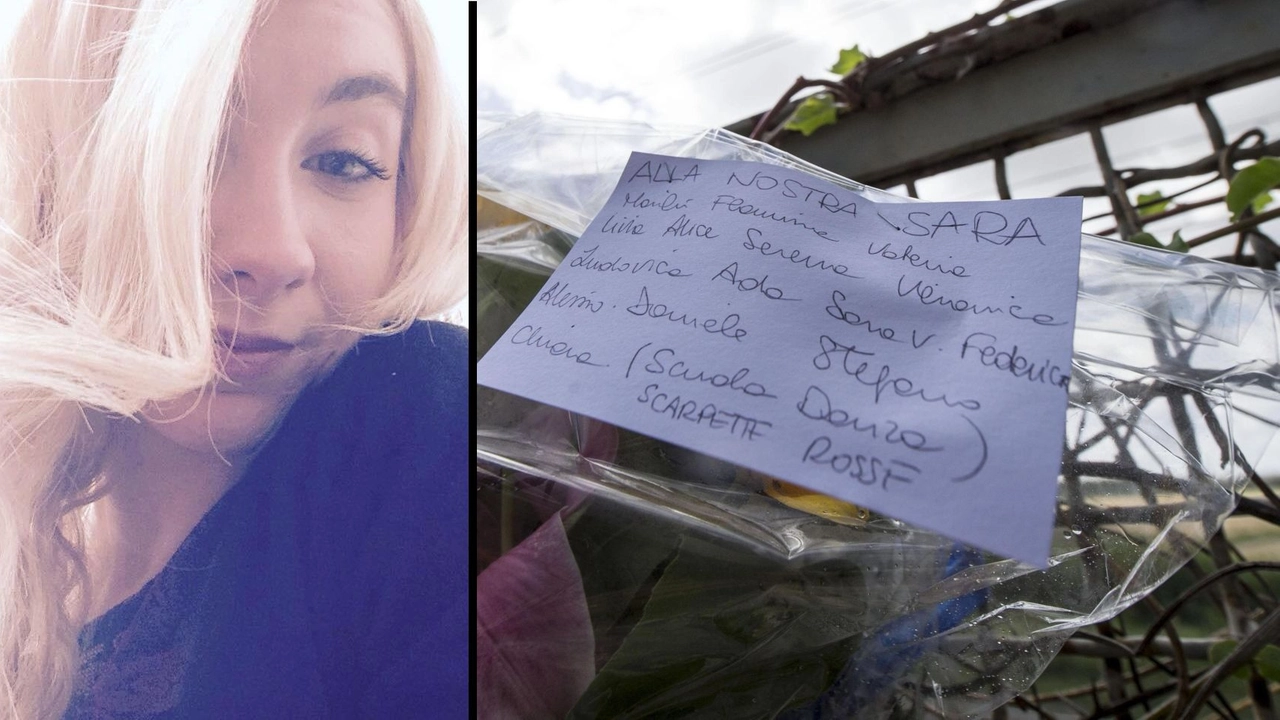 ALLA NOSTRA SARA
Marilù Flaminia Valeria
Livia Alice Serena Veronica
Ludovica Ada Sara V. Federica
Alessio. Daniele Stefano
Chiara. (Scuola Danza)
SCARPETTE ROSSE